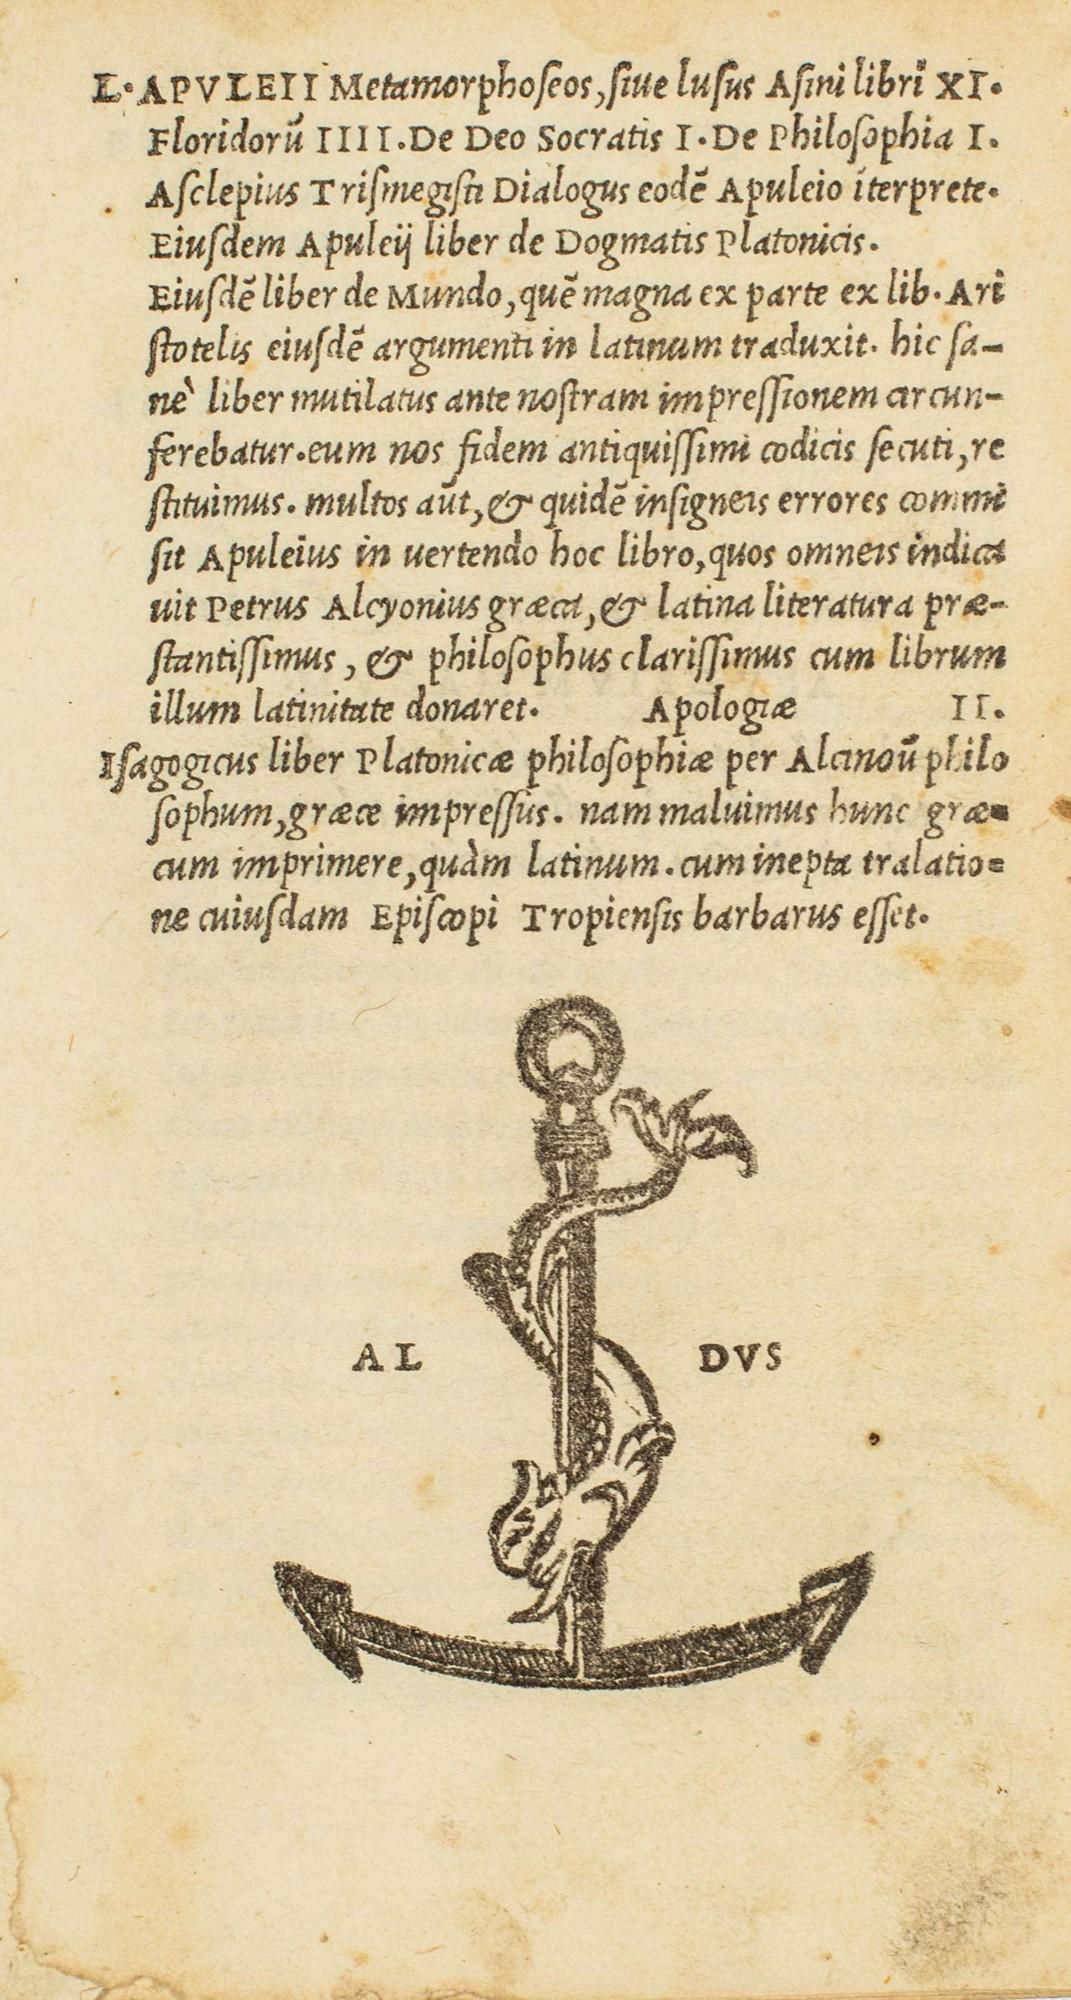 L·APVLEII Metamorphoseos, siue lusus Asini libri XI.
Floridorũ IIII. De Deo Socratis I. De Philosophia I.
Asclepius Trismegisti Dialogus eodẽ Apuleio ĩterprete.
Eiusdem Apuleij liber de Dogmatis Platonicis.
Eiusdẽ liber de Mundo, quẽ magna ex parte ex lib. Ari
stotelis eiusdẽ argumenti in latinum traduxit. hic sa-
nè liber mutilatus ante nostram impressionem circun-
ferebatur. eum nos fidem antiquissimi codicis secuti, re
stituimus. multos aũt, & quidẽ insigneis errores commi
sit Apuleius in uertendo hoc libro, quos omneis indica
uit Petrus Alcyonius græca, & latina literatura præ-
stantissimus, & philosophus clarissimus cum librum
illum latinitate donaret. Apologiæ II.
Isagogicus liber Platonicæ philosophiæ per Alcinoũ philo
sophum, græce impressus. nam maluimus hunc græ-
cum imprimere, quàm latinum. cum inepta tralatio-
ne cuiusdam Episcopi Tropiensis barbarus esset.
AL DVS